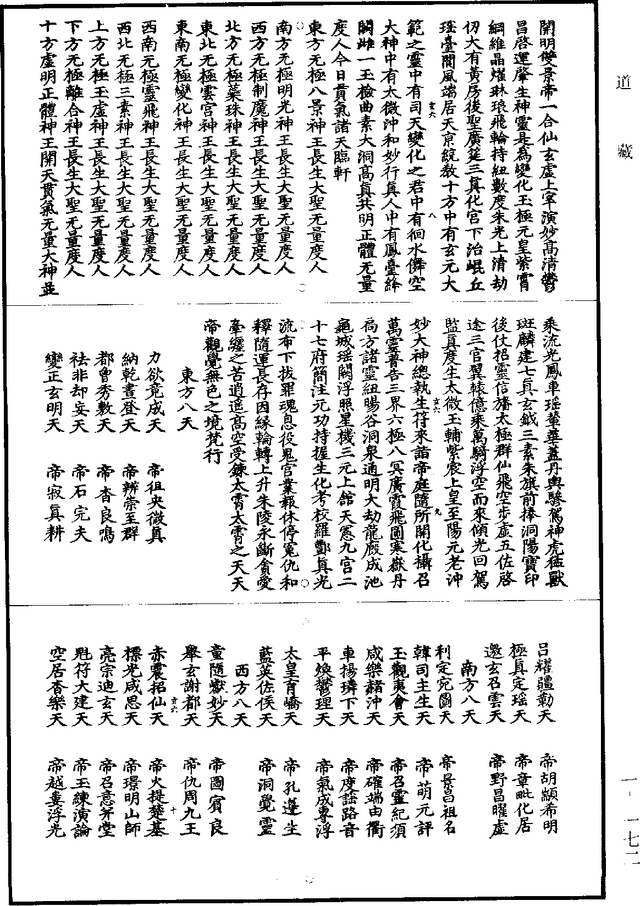 道藏
開明雙景帝一合仙玄虛上宰演妙高清鬱
昌啓運肇生神靈是爲變化玉極元皇紫霄
綱維晶燿琳琅飛輪持紐數度朱光上清劫
仞大有黃房後聖廣筵三真化官下治崐丘
瑶臺閬風端居天京統數十方中有玄元大
範之靈中有司天變化之君中有徊水儛空
大神中有太微沖和妙行真人中有鳳臺絳
闕雌一玉檢曲素大洞高真共明正體无量
度人今日貫氣諸天臨軒
東方无極八景神王長生大聖无量度人
南方无極明光神王長生大聖无量度人
西方无極制魔神王長生大聖无量度人
北方无極蘂珠神王長生大聖无量度人
東北无極雲宮神王長生大聖无量度人
東南无極變化神王長生大聖无量度人
西南无極靈飛神王長生大聖无量度人
西北无極三素神王長生大聖无量度人
上方无極玉虛神王長生大聖无量度人
下方无極離合神王長生大聖无量度人
十方虛明正體神王開天貫氣无量大神並
乘流光鳳車瑶輦華蓋丹輿驂駕神虎猛獸
斑麟建七真玄鉞三素朱旗前捧洞陽寶印
後仗招靈信旛太極群仙飛空步虛五佐啓
途三官翼轅億乘萬騎浮空而來傾光回駕
監真度生太微玉輔紫宸上皇至陽元老沖
妙大神總執生符來詣帝庭隨所開化攝召
萬靈普告三界六極八冥廣霞飛圖寒嶽丹
局方諸靈紐暘谷洞泉通明大劫龍般成池
龜城瑶闕浮照星機三元上館天慝九宮二
十七府簡注元功持握生化考校羅酆真光
流布下拔罪魂息役鬼官業報休停冤仇和
釋隨運長存因緣輪轉上升朱陵永斷貪愛
牽纏之苦逍遥高空受鍊太霄太霄之天天
帝觀覺無色之境梵行
東方八天
力欲竟成天 帝祖央微真
納乾晝登天 帝辨崇至群
都曾秀敷天 帝杳良鳴
祛非却妄天 帝石完夫
變正玄明天 帝寂真耕
呂耀疆勤天 帝胡顓希明
極真定瑶天 帝章毗化居
邀玄召雲天 帝野昌曜虛
南方八天
利定宛圖天 帝景昌祖名
韓司主生天 帝萌元評
玉觀夷會天 帝召靈紀須
咸樂諸沖天 帝確端由衢
車揚璘下天 帝度謠路音
平煥鬱理天 帝氣成專浮
太皇育嶠天 帝孔蓬生
藍英佐侯天 帝洞覺靈
西方八天
童隨嶽妙天 帝圖賓良
舉玄謝都天 帝仇周九王
赤震招仙天 帝火提楚基
標光咸思天 帝璟明山師
亮宗迪玄天 帝召意茅堂
魁符大建天 帝玉練演論
空居杳樂天 帝越婁浮光
一－一七二